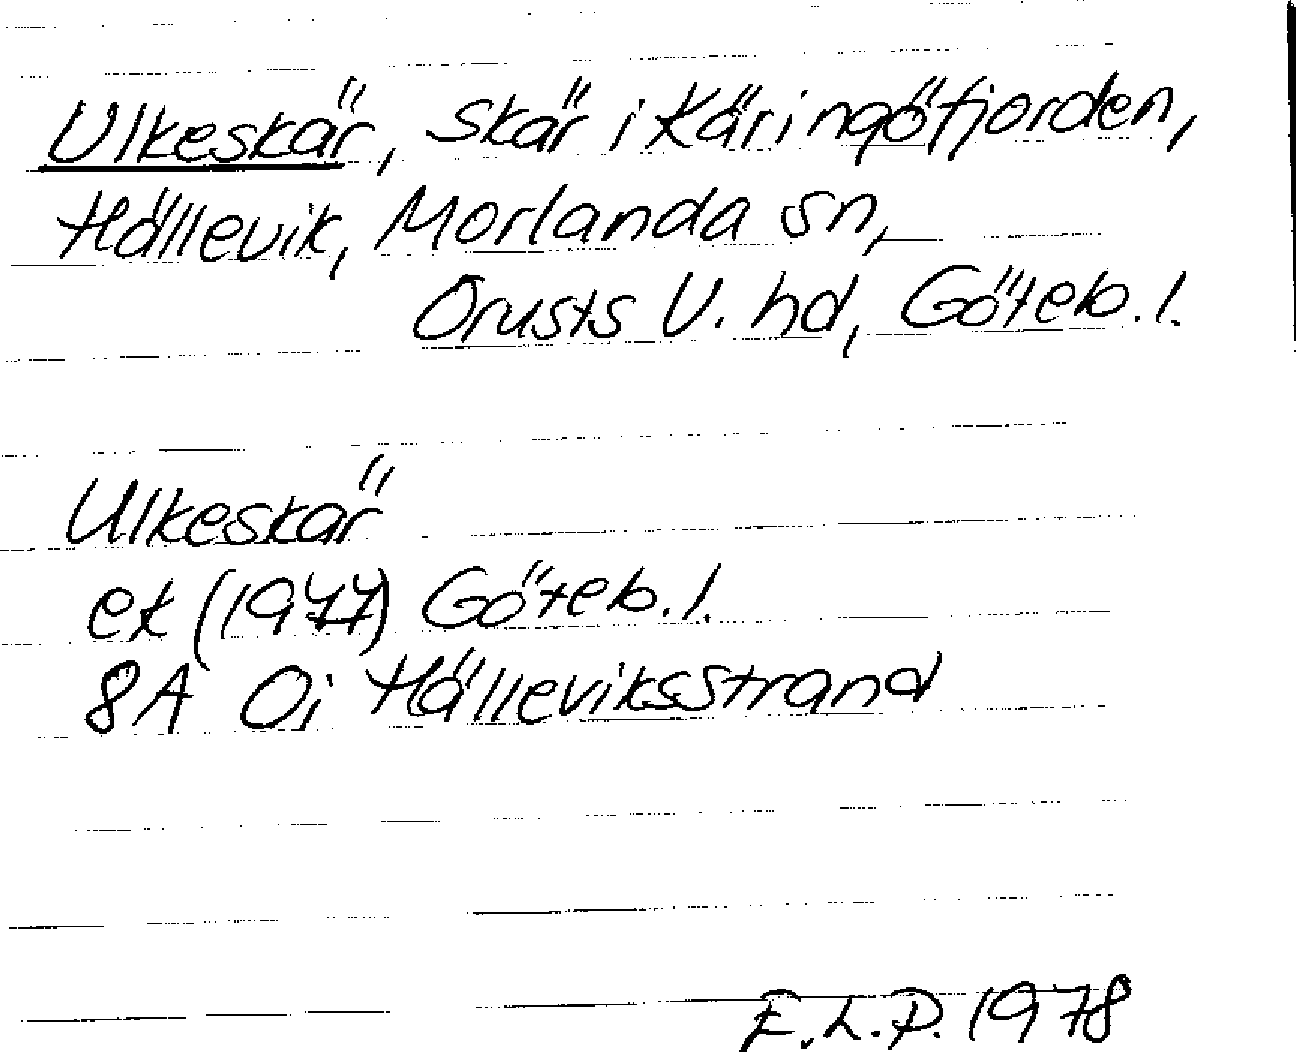 Ulkeskär, skär i Käringöfjorden,
Hällevik, Morlanda sn,
Orusts V. hd, Göteb. l.
Ulkeskär
ek (1977) Göteb. l.
8A 0i Hälleviksstrand
E.L.P. 1978